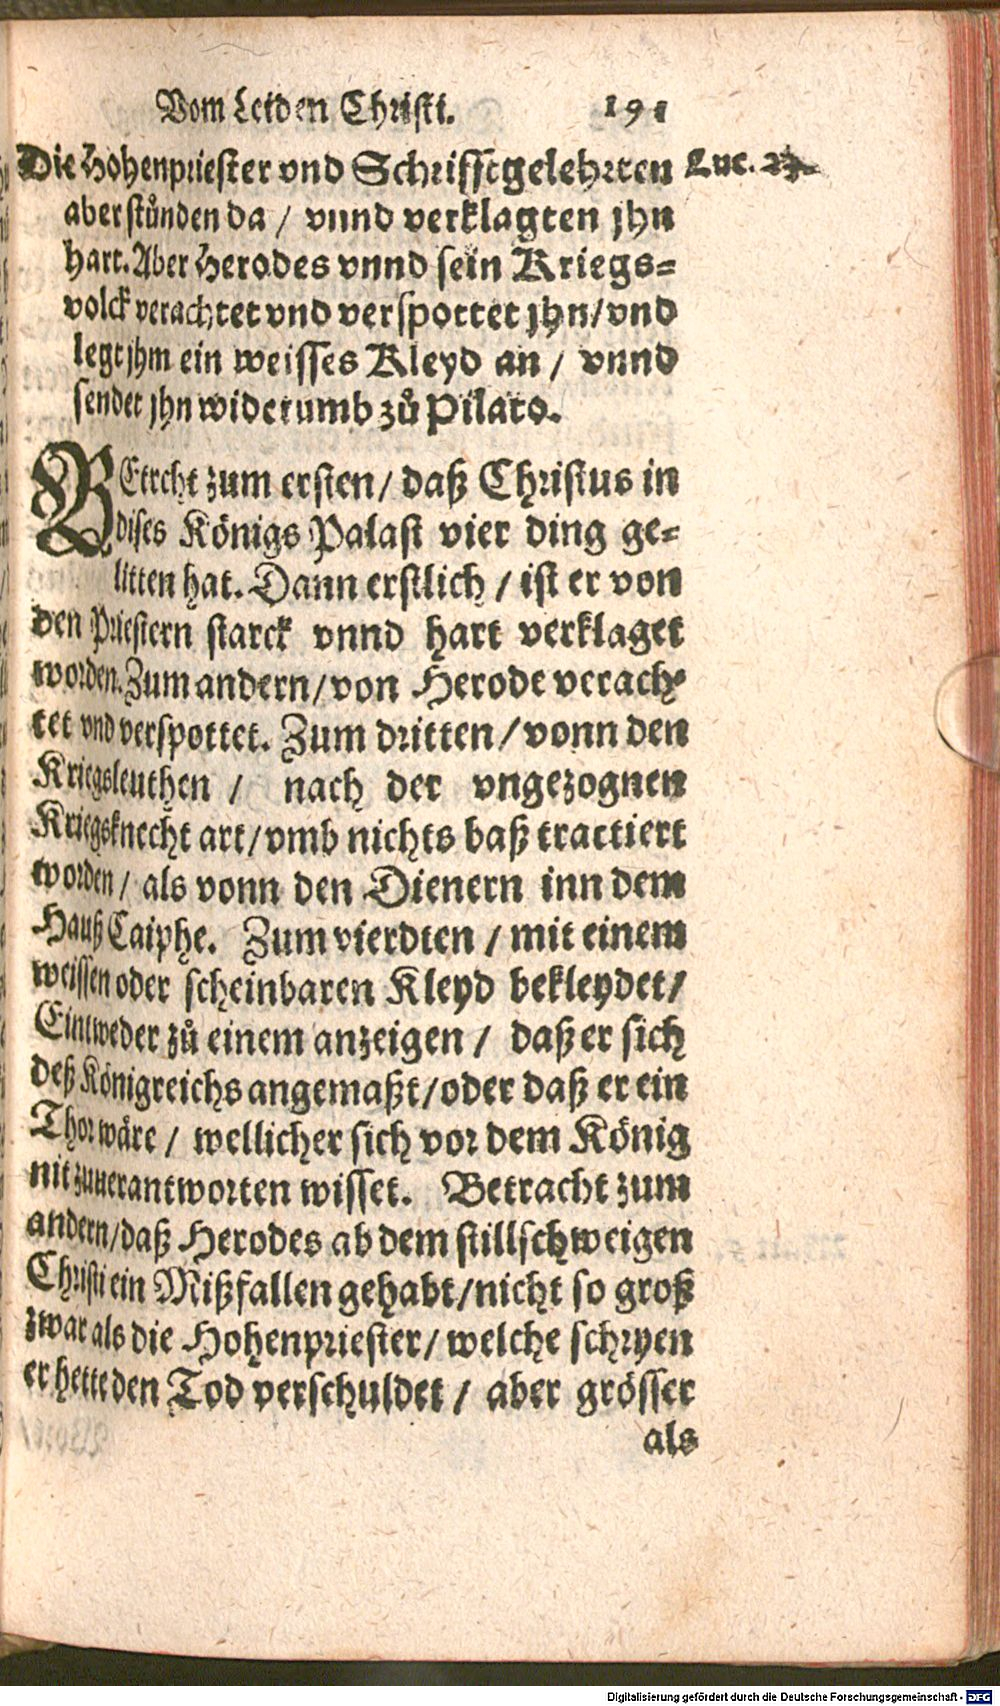 Vom Leiden Christi. 191
Die Hohenpriester vnd Schrifftgelehrten Luc. 23.
aber stůnden da / vnnd verklagten jhn
hart. Aber Herodes vnnd sein Kriegs=
volck verachtet vnd verspottet jhn/vnd
legt jhm ein weisses Kleyd an / vnnd
sendet jhn widerumb zů Pilato.
BEtrcht zum ersten / daß Christus in
dises Königs Palast vier ding ge=
litten hat. Dann erstlich / ist er von
den Priestern starck vnnd hart verklaget
worden. Zum andern/von Herode verach=
tet vnd verspottet. Zum dritten / vonn den
Kriegsleuthen / nach der vngezognen
Kriegsknecht art/vmb nichts baß tractiert
worden / als vonn den Dienern inn dem
Hauß Caiphe. Zum vierdten / mit einem
weissen oder scheinbaren Kleyd bekleydet/
Eintweder zů einem anzeigen / daß er sich
deß Königreichs angemaßt/oder daß er ein
Thor wäre / wellicher sich vor dem König
nit zuuerantworten wisset. Betracht zum
andern/daß Herodes ab dem stillschweigen
Christi ein Mißfallen gehabt/nicht so groß
zwar als die Hohenpriester/ welche schryen
er hette den Tod verschuldet / aber grösser
als
Digitalisierung gefördert durch die Deutsche Forschungsgemeinschaft - DFG